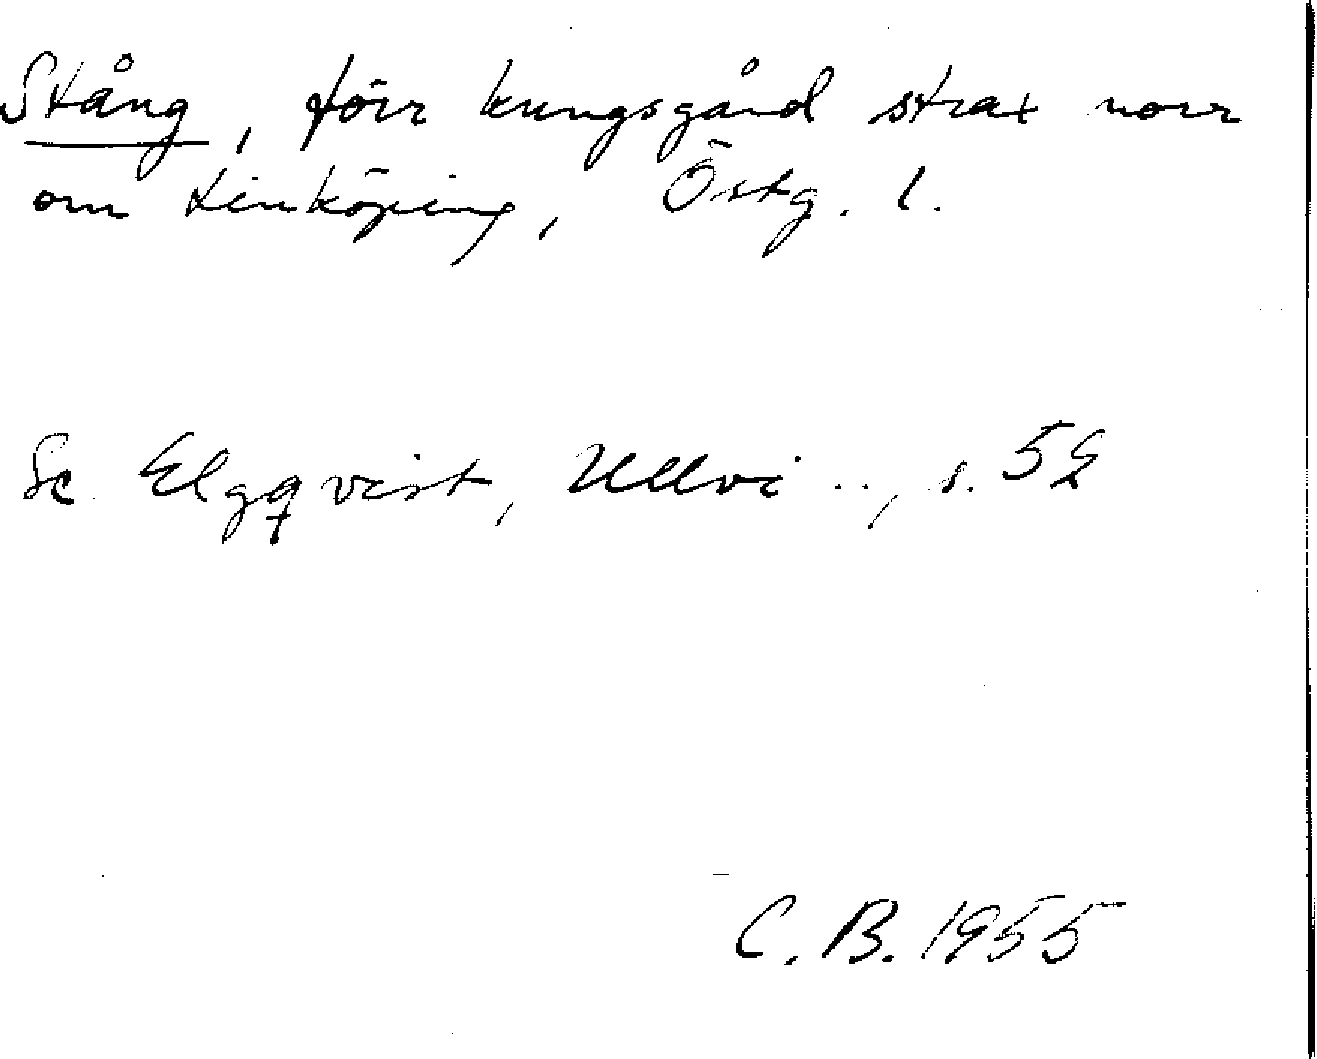 Stång, förr kungsgård strax norr
om Linköping, Östg. l.
Se Elgqvist, Ullvi .., s. 52
C. B. 1955